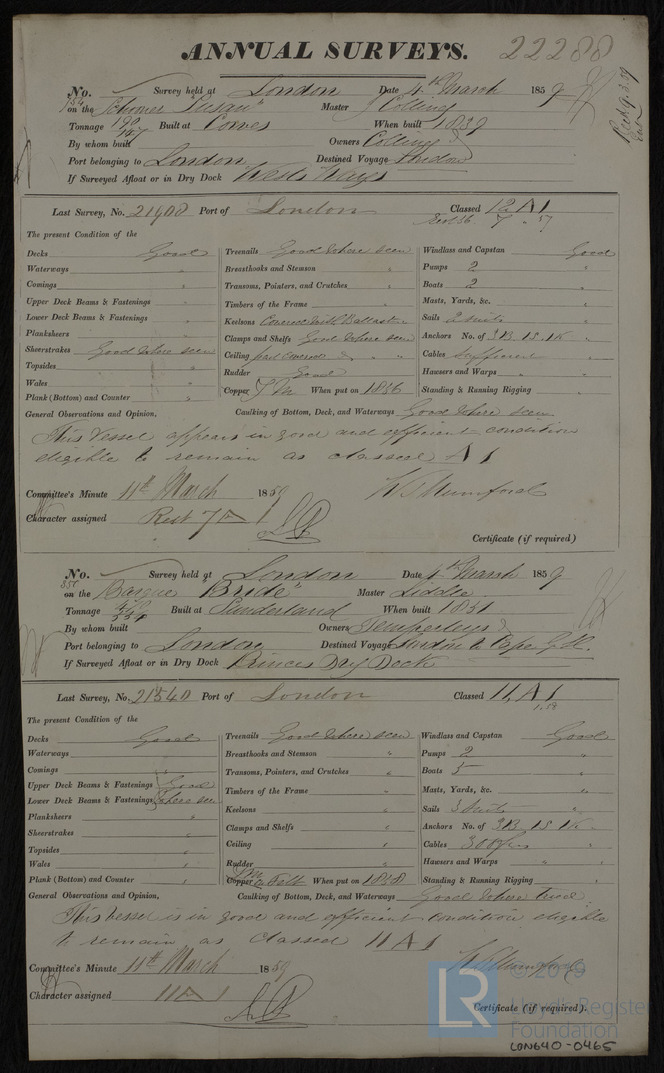 ANNUAL SURVEYS. 22288
No. 154 Survey held at London Date 4th March 1859
on the Schooner "Susan" Master J Collings
Tonnage Built at Cowes When built 1839
By whom built Owners Collings
Port belonging to London Destined Voyage London
If Surveyed Afloat or in Dry Dock
Last Survey, No. 21908 Port of London Classed 12 A 1
The present Condition of the
Decks Good
Waterways "
Comings "
Upper Deck Beams & Fastenings "
Lower Deck Beams & Fastenings "
Planksheers "
Sheerstrakes Good where seen
Topsides "
Wales "
Plank (Bottom) and Counter "
Treenails Good where seen
Breasthooks and Stemson "
Transoms, Pointers, and Crutches "
Timbers of the Frame "
Keelsons Covered with Ballast
Clamps and Shelfs Good where seen
Ceiling part Covered " "
Rudder Good
Copper Y M When put on 1856
Windlass and Capstan Good
Pumps 2 "
Boats 2 "
Masts, Yards, &c. "
Sails 2 suits "
Anchors No. of 3B. 1S. 1K "
Cables Sufficient "
Hawsers and Warps "
Standing & Running Rigging "
General Observations and Opinion, Caulking of Bottom, Deck, and Waterways Good where seen.
This Vessel appears in good and efficient condition
eligible to remain as classed A 1
Committee's Minute 11th March 1859 W S Mumford
Character assigned Rest 7 A 1
Certificate (if required)
No. 351 Survey held at London Date 4th March 1859
on the Barque "Bride" Master Liddle
Tonnage Built at Sunderland When built 1851
By whom built Owners Temperleys
Port belonging to London Destined Voyage London to Cape G.H.
If Surveyed Afloat or in Dry Dock Princes Dry Dock
Last Survey, No. 21540 Port of London Classed 11, A 1
The present Condition of the
Decks Good
Waterways "
Comings "
Upper Deck Beams & Fastenings Good
Lower Deck Beams & Fastenings where seen
Planksheers "
Sheerstrakes "
Topsides "
Wales "
Plank (Bottom) and Counter "
Treenails Good where seen
Breasthooks and Stemson "
Transoms, Pointers, and Crutches "
Timbers of the Frame "
Keelsons "
Clamps and Shelfs "
Ceiling "
Rudder "
Copper on Felt When put on 1858
Windlass and Capstan Good
Pumps 2 "
Boats 5 "
Masts, Yards, &c. "
Sails 3 suits "
Anchors No. of 3B. 1S. 1K.
Cables 300 fms "
Hawsers and Warps " "
Standing & Running Rigging "
General Observations and Opinion, Caulking of Bottom, Deck, and Waterways Good where tried
This vessel is in good and efficient condition eligible
to remain as Classed 11 A 1
Committee's Minute 11th March 1859 W S Mumford
Character assigned 11 A 1
Certificate (if required).
© 2019
Lloyd's Register
Foundation
LR
LON640-0465